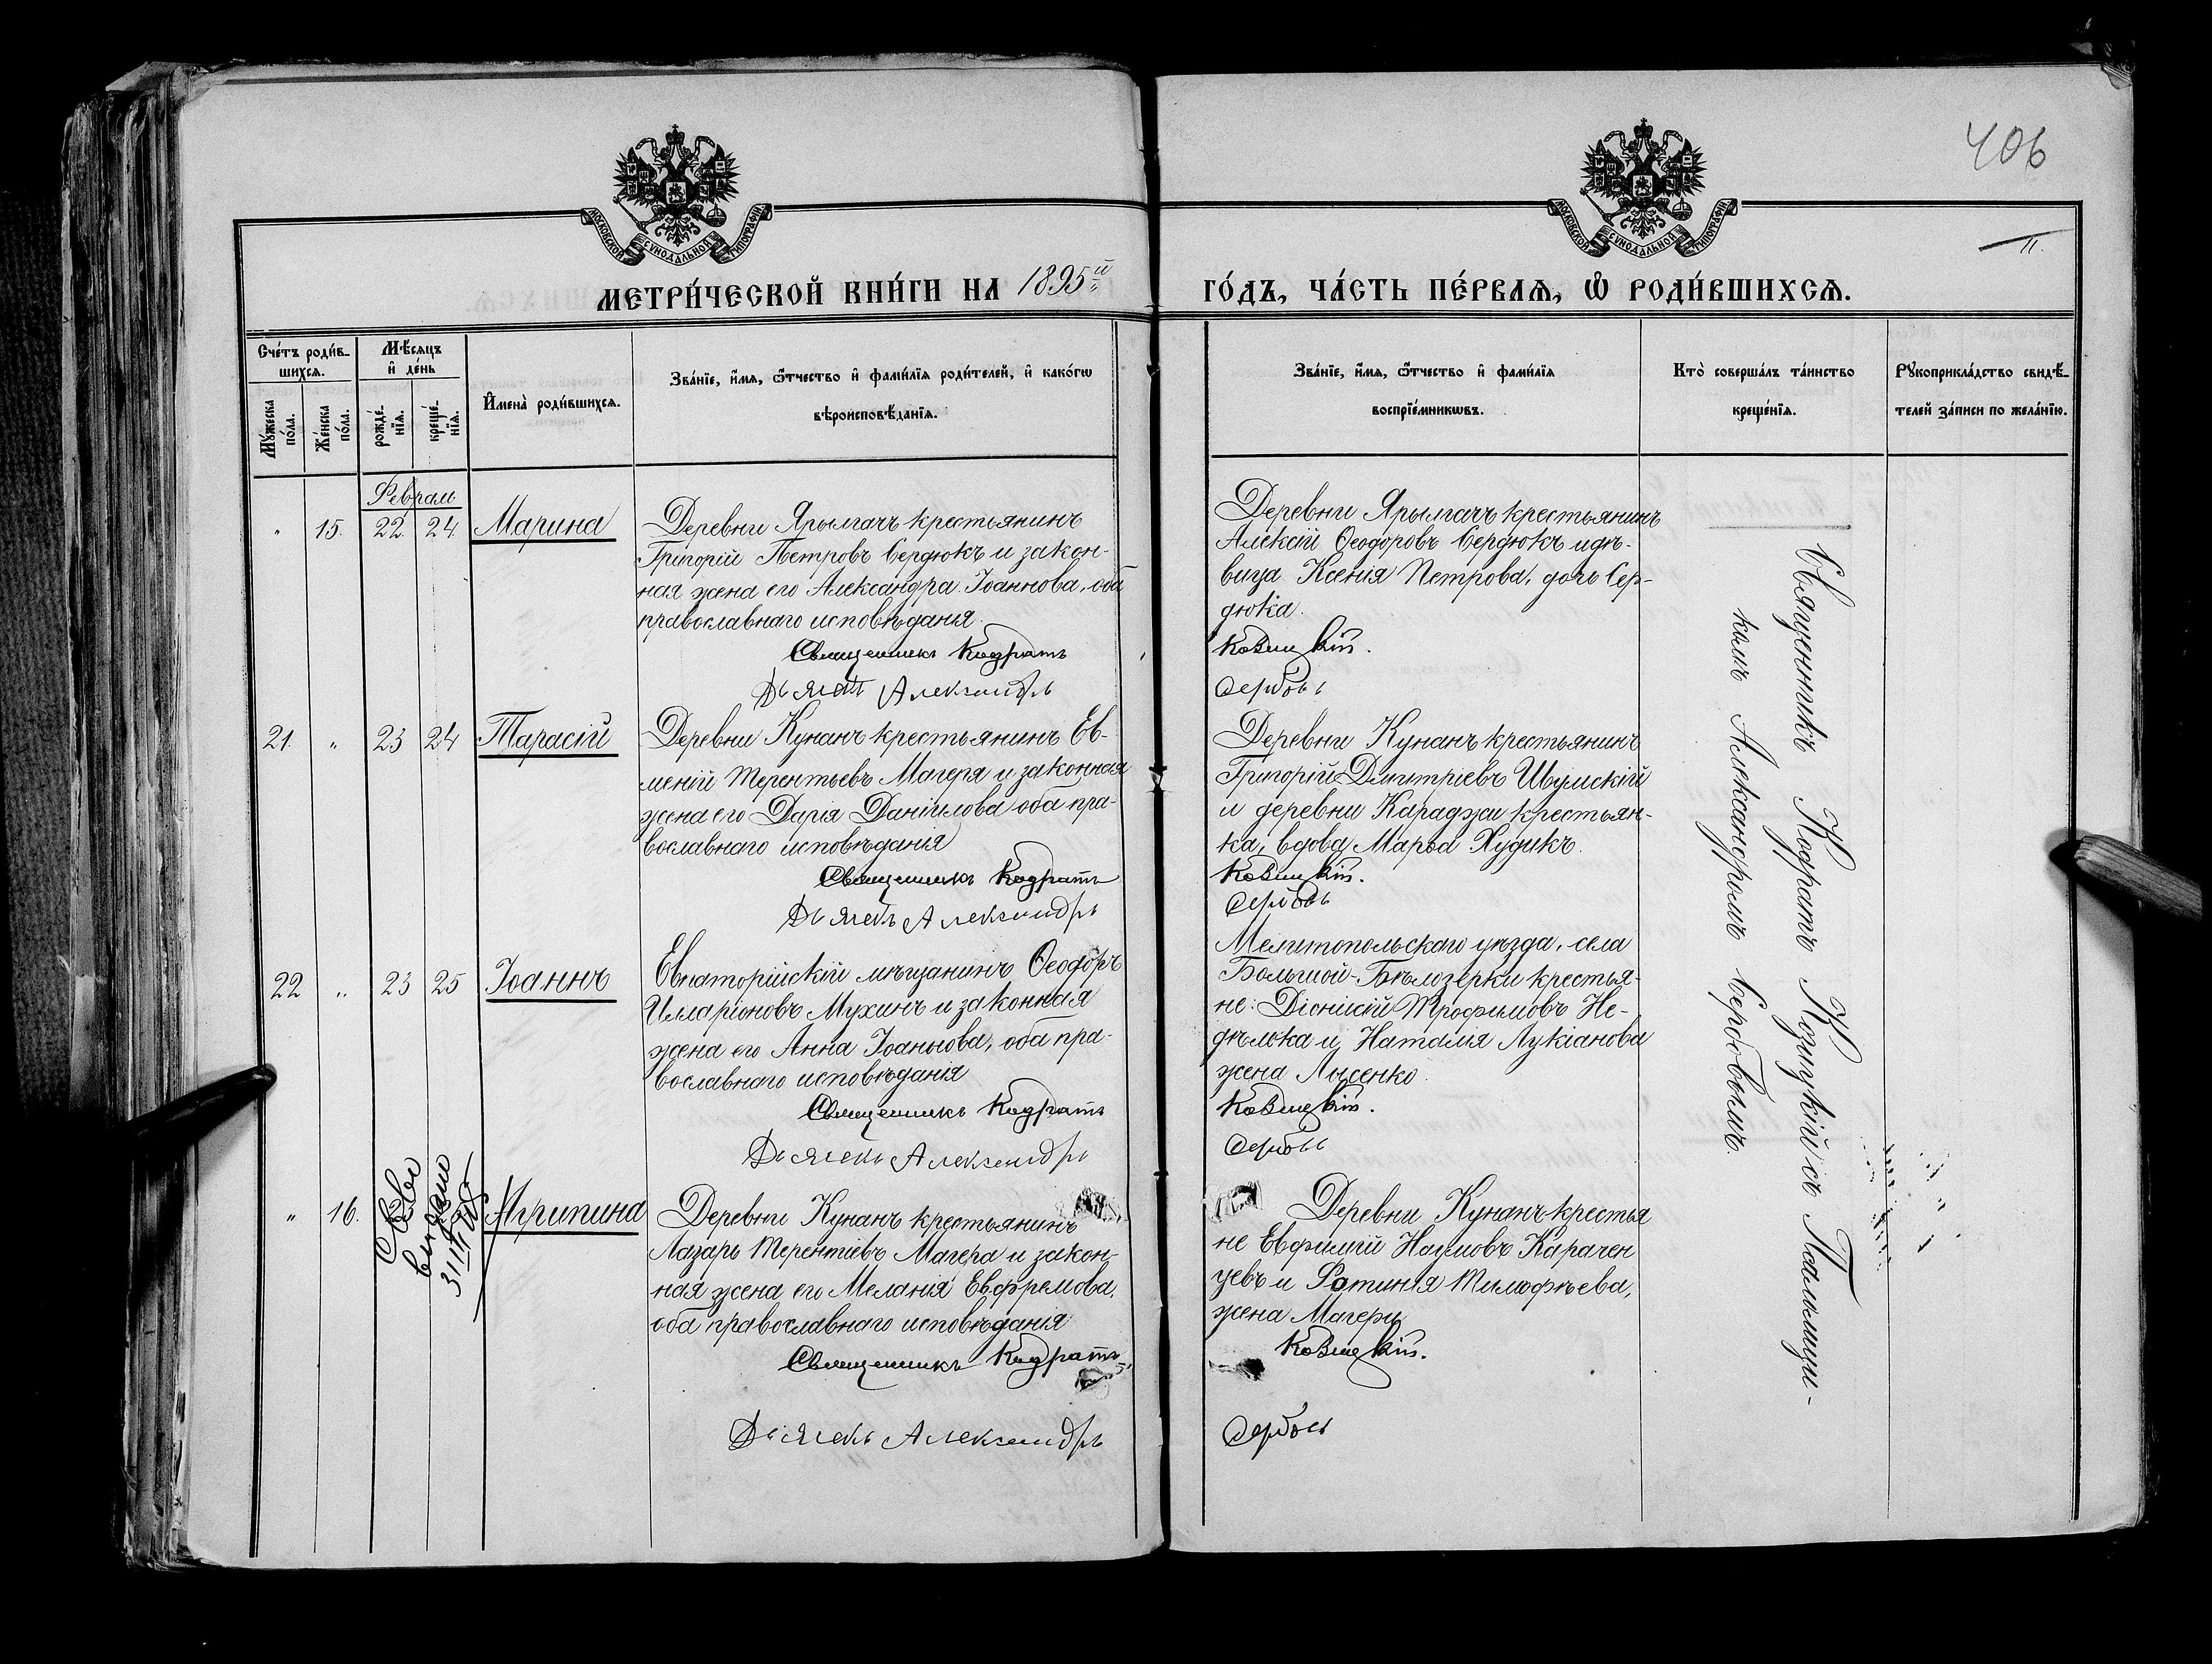 406
МОСКОВСКОЙ СѴНОДАЛЬНОЙ ТИПОГРАФІИ.
МОСКОВСКОЙ СѴНОДАЛЬНОЙ ТИПОГРАФІИ.
11.
МЕТРИ́ЧЕСКОЙ КНИ́ГИ НА 1895й
ГО́ДЪ, ЧА́СТЬ ПЕ́РВАѦ, Ѽ РОДИ́ВШИХСѦ.
Сче́тъ роди́в-
шихсѧ.
Мꙋ́жеска
по́ла.
Же́нска
по́ла.
Мѣ́сѧцъ
и҆ де́нь
рожде́-
нїѧ.
креще́-
нїѧ.
И҆мена̀ роди́вшихсѧ.
Зва́нїе, и҆́мѧ, ѻ҆́тчество и҆ фами́лїѧ роди́телей, и҆ како́гѡ
вѣроисповѣ́данїѧ.
Зва́нїе, и҆́мѧ, ѻ҆́тчество и҆ фами́лїѧ
воспрїе́мникѡвъ.
Кто̀ соверша́лъ та́инство
креще́нїѧ.
Рꙋкоприкла́дство свидѣ́-
телей за́писи по жела́нїю.
Февраль
" 15. 22. 24. Марина
Деревни Ярылгачъ крестьянинъ
Григорій Петровъ Сердюкъ и закон-
ная жена его Александра Іоаннова, оба
православнаго исповѣданія.
Священникъ Кодратъ
Дьячекъ Александръ
Деревни Ярылгачъ крестьянинъ
Алексій Ѳеодоровъ Сердюкъ и дѣ-
вица Ксенія Петрова, дочь Сер-
дюка.
Козицкій.
Сербовъ
21. " 23 24 Тарасій
Деревни Кунанъ крестьянинъ Ев-
меній Терентьевъ Магеря и законная
жена его Дарія Даніилова оба пра-
вославнаго исповѣданія
Священникъ Кодратъ
Дьячекъ Александръ
Деревни Кунанъ крестьянинъ
Григорій Дмитріевъ Шумскій
и деревни Караджи крестьян-
ка, вдова Марѳа Худикъ.
Козицкій.
Сербовъ
22 " 23 25 Іоаннъ
Евпаторійскій мѣщанинъ Ѳеодоръ
Илларіоновъ Мухинъ и законная
жена его Анна Іоаннова, оба пра-
вославнаго исповѣданія
Священникъ Кодратъ
Дьячекъ Александръ
Мелитопольскаго уѣзда, села
Большой-Бѣлозерки крестья-
не: Діонисій Трофимовъ Не-
дѣлька и Наталія Лукіанова
жена Лысенко.
Козицкій.
Сербовъ
" 16. Агрипина
Деревни Кунанъ крестьянинъ
Лазарь Терентіевъ Магера и закон-
ная жена его Меланія Евфремова,
оба православнаго исповѣданія
Священникъ Кодратъ
Дьячекъ Александръ
Деревни Кунанъ крестья
не Евфимій Наумовъ Карачен
цевъ и Фотинія Тимофѣева,
жена Магеры
Козицкій.
Сербовъ
Священникъ Кодратъ Козицкій съ Псаломщи-
комъ Александромъ Сербовымъ.